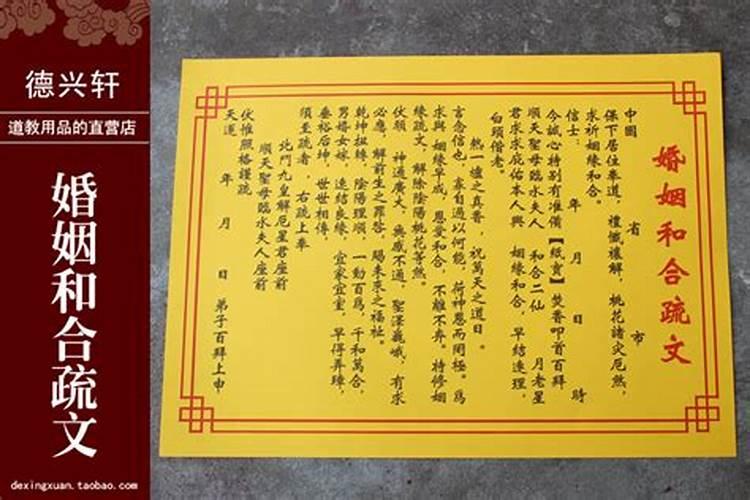 德兴轩
道教用品的直营店
婚姻和合疏文
dexingxuan.taobao.com
婚姻和合疏文
中國 省 市
保下居住奉道，禮懺禳解，桃花諸灾厄煞，
求祈姻緣和合。
信士： 年 月 日 時
今誠心特别有准備【紙寶】焚香叩首百拜
順天聖母臨水夫人 和合二仙 月老星
君求求庇佑本人與 姻緣和合，早結連理，
白頭偕老。
熱一爐之真香，祝萬天之道日。
言念信也，辜自過以何能，荷神恩而罔極。爲
求與 姻緣早成，恩愛和合，不離不弃。特修姻
緣疏文，解除陰陽桃花等煞。
伏願 神通廣大，無感不通，聖澤巍峨，有求
必應，解前生之罪咎，賜未來之福祉。
乾坤扭轉，陰陽理順，一動百爲，千和萬合，
男婚女嫁，速結良緣，宜家宜室，早得弄璋，
垂裕后坤，世世相傳，
須至疏者，右疏上奉
北斗九皇解厄星君座前
順天聖母臨水夫人座前
伏惟照格謹疏
天運 年 月 日 弟子百拜上申